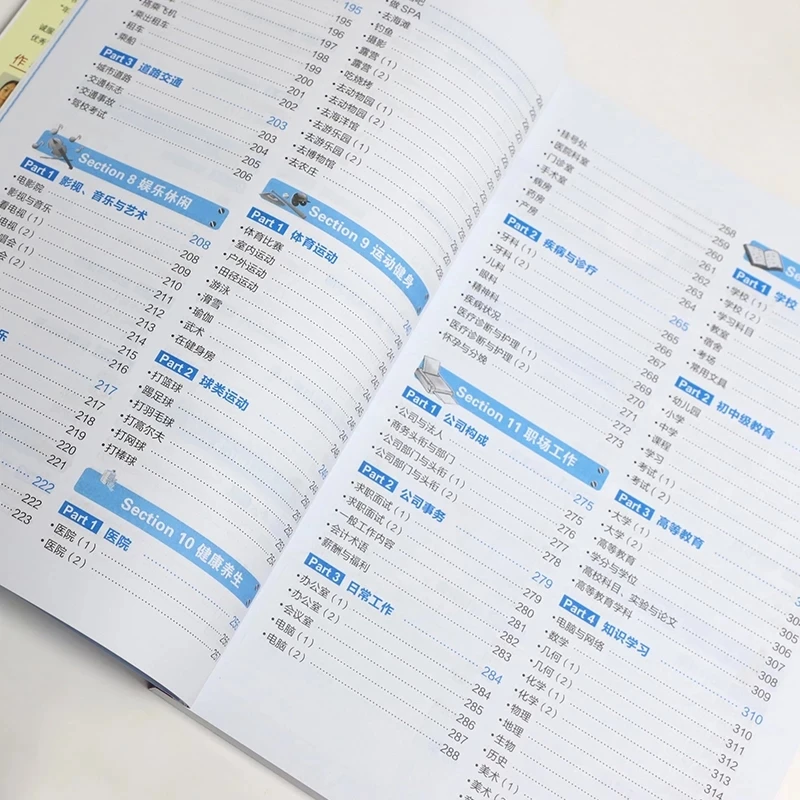 搭乘飞机
乘出租车
租车
乘船
Part 3 道路交通
·城市道路
·交通标志
·交通事故
·驾校考试
195
195
196
197
198
199
200
201
202
203
203
204
205
206
Section 8 娱乐休闲
Part 1 影视、音乐与艺术
·电影院
·影视与音乐
看电视（1）
208
208
209
210
211
212
213
214
215
216
217
217
218
219
220
221
222
222
223
·做 SPA
·去海滩
·钓鱼
·摄影
·露营（1）
·露营（2）
·吃烧烤
·去动物园（1）
·去动物园（2）
·去海洋馆
·去游乐园（1）
·去游乐园（2）
·去博物馆
·去农庄
Section 9 运动健身
Part 1 体育运动
·体育比赛
·室内运动
·户外运动
·田径运动
·游泳
·滑雪
·瑜伽
·武术
·在健身房
Part 2 球类运动
·打篮球
·踢足球
·打羽毛球
·打高尔夫
·打网球
·打棒球
Section 10 健康养生
Part 1 医院
·医院（1）
·医院（2）
·挂号处
·医院科室
·门诊室
·手术室
·病房
·药房
·产房
258
259
260
261
262
263
264
Part 2 疾病与诊疗
·牙科（1）
·牙科（2）
·儿科
·眼科
·精神科
·疾病状况
·医疗诊断与护理（1）
·医疗诊断与护理（2）
·怀孕与分娩
265
265
266
267
268
269
270
271
272
273
Section 11 职场工作
Part 1 公司构成
·公司与法人
·商务头衔与部门
·公司部门与头衔（1）
·公司部门与头衔（2）
275
275
276
277
278
Part 2 公司事务
·求职面试（1）
·求职面试（2）
·一般工作内容
·会计术语
·薪酬与福利
279
279
280
281
282
283
Part 3 日常工作
·办公室（1）
·办公室（2）
·会议室
·电脑（1）
·电脑（2）
284
284
285
286
287
288
Part 1 学校
·学校（1）
·学校（2）
·学习科目
·教室
·宿舍
·考场
·常用文具
Part 2 初中级教育
·幼儿园
·小学
·中学
·课程
·学习
·考试（1）
·考试（2）
Part 3 高等教育
·大学（1）
·大学（2）
·高等教育
·学分与学位
·高校科目、实验与论文
·高等教育学科
305
306
307
308
309
Part 4 知识学习
·电脑与网络
·数学
·几何（1）
·几何（2）
·化学（1）
·化学（2）
·物理
·地理
·生物
·历史
·美术（1）
·美术（
310
310
311
312
313
314